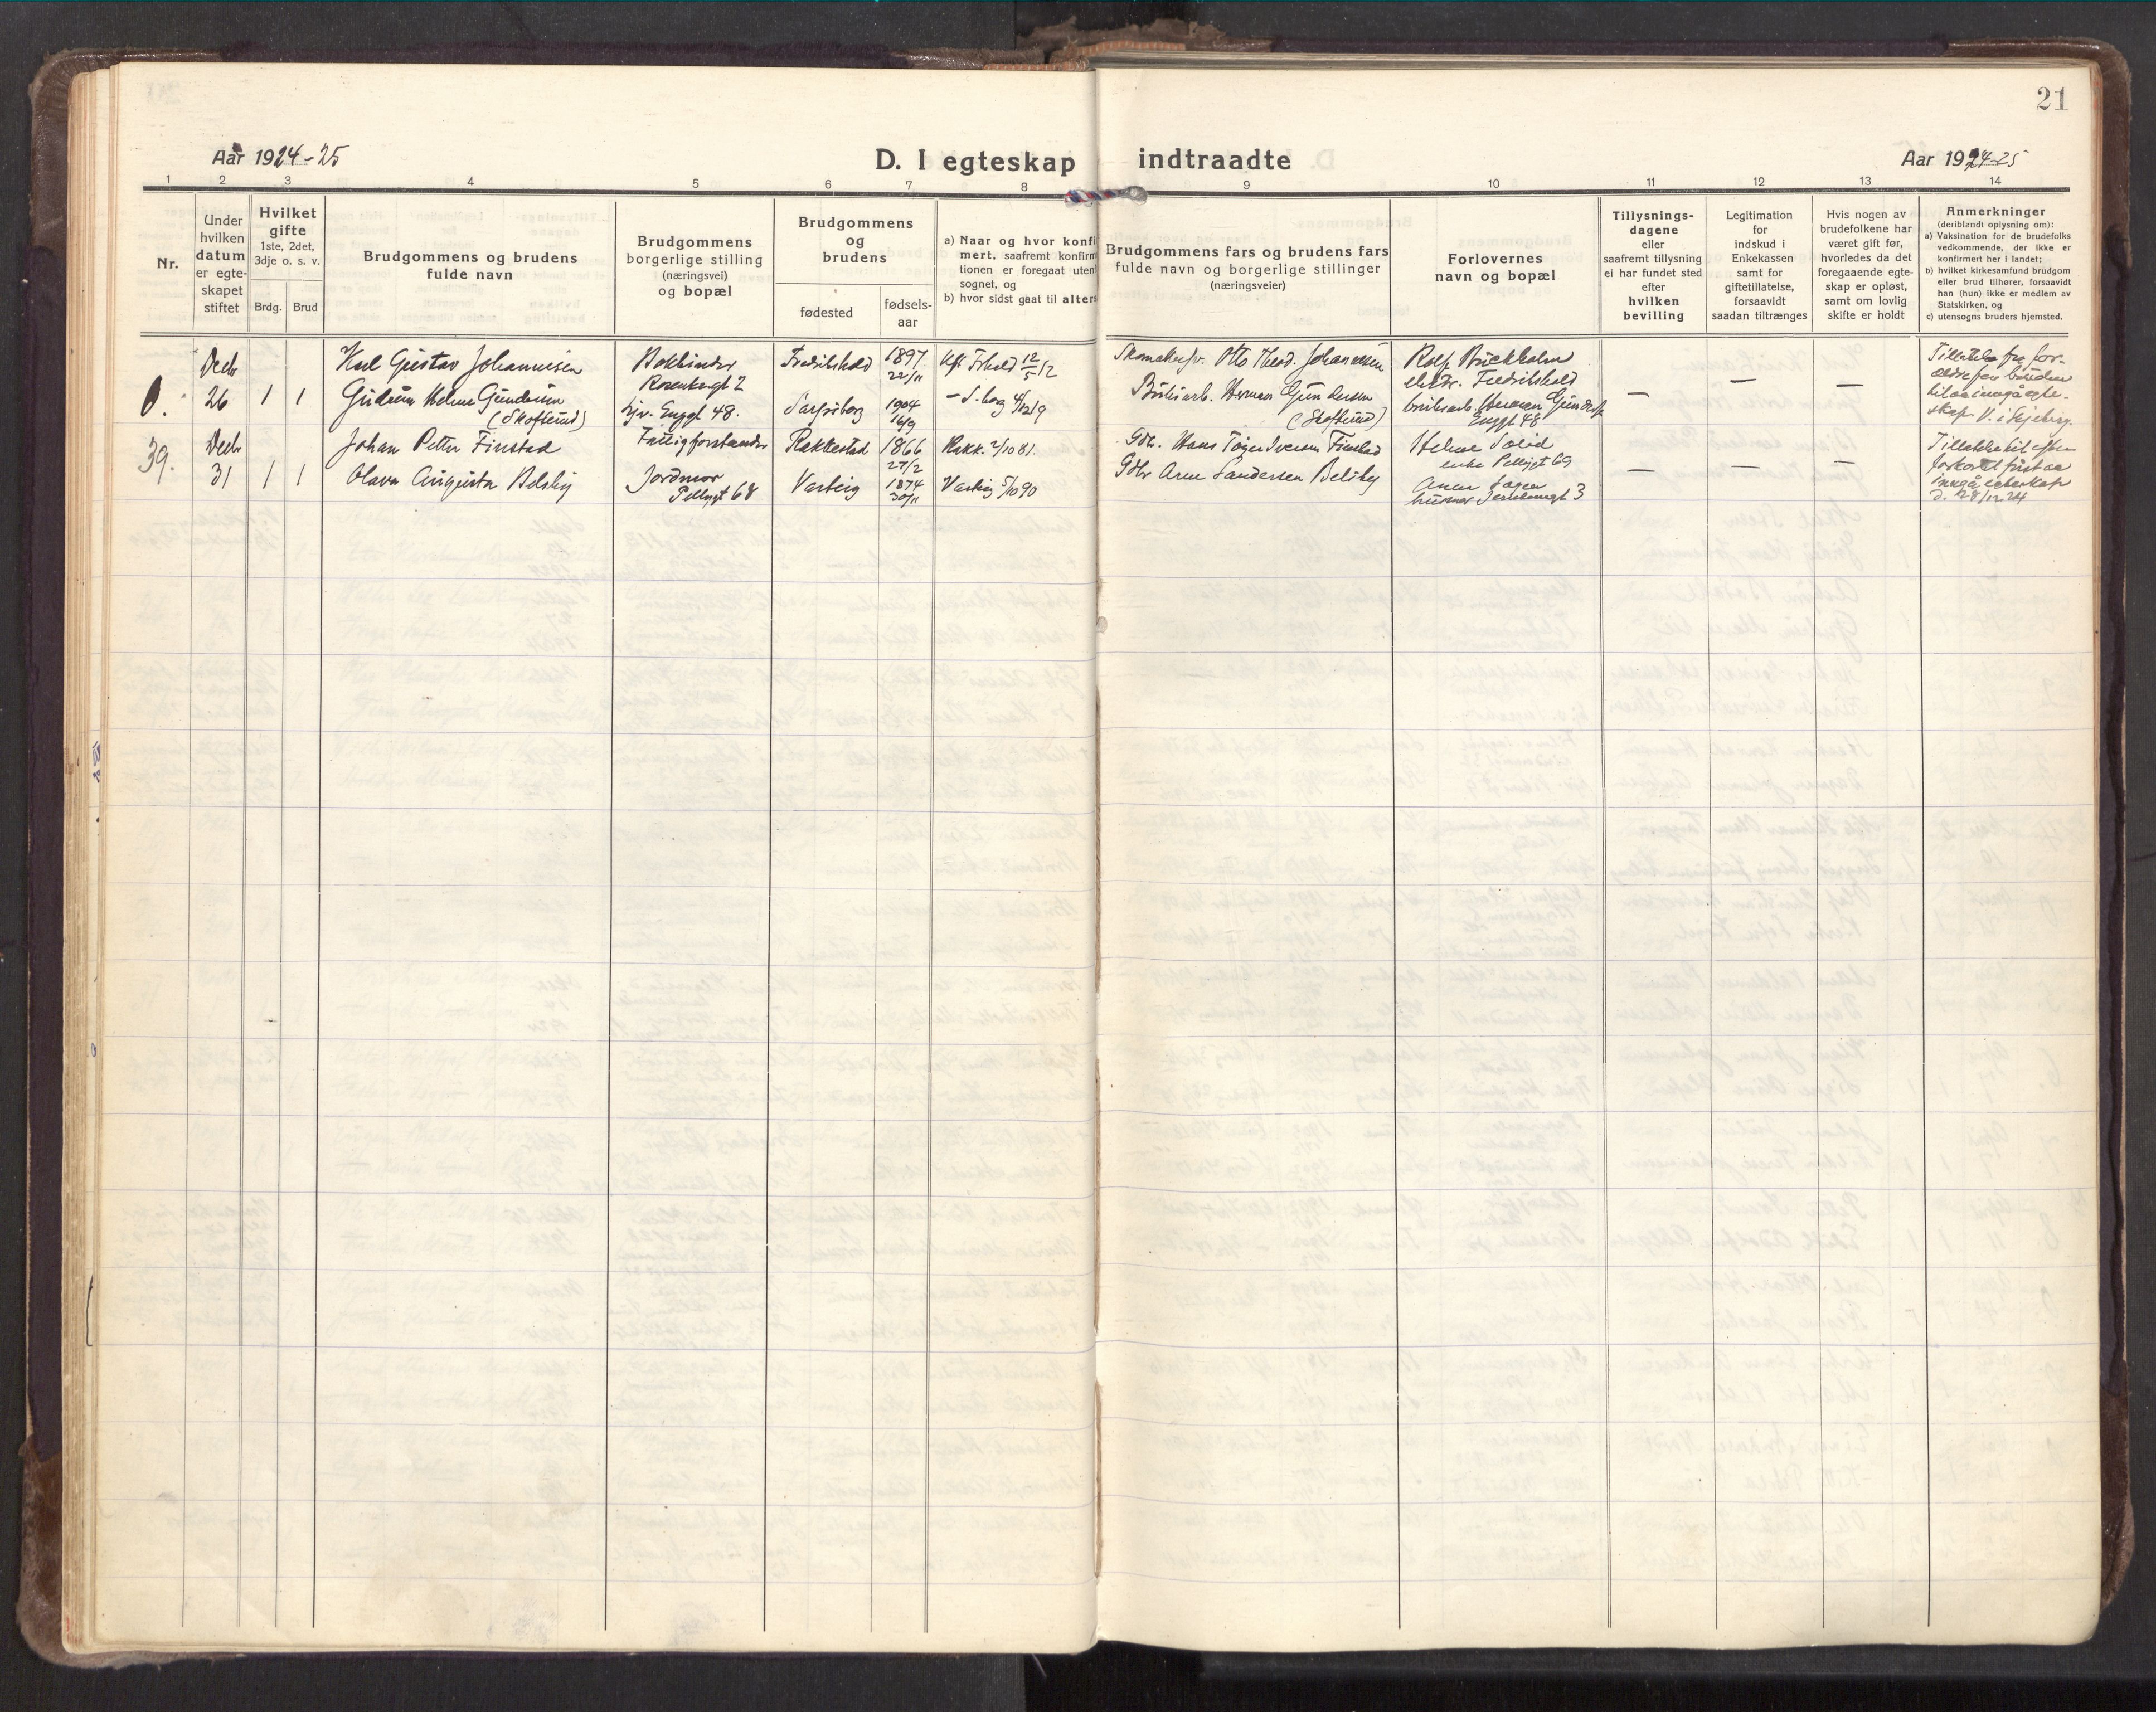 21
Aar 1924-25
D. I egteskap indtraadte
Aar 1924-25
1 2 3 4 5 6 7 8 9 10 11 12 13 14
Nr.
Under
hvilken
datum
er egte-
skapet
stiftet
Hvilket
gifte
1ste, 2det,
3dje o. s. v.
Brdg. Brud
Brudgommens og brudens
fulde navn
Brudgommens
borgerlige stilling
(næringsvei)
og bopæl
Brudgommens
og
brudens
fødested
fødsels-
aar
a) Naar og hvor konfi
mert, saafremt konfirm
tionen er foregaat uten
sognet, og
b) hvor sidst gaat til alters
Brudgommens fars og brudens fars
fulde navn og borgerlige stillinger
(næringsveier)
Forlovernes
navn og bopæl
Tillysnings-
dagene
eller
saafremt tillysning
ei har fundet sted
efter
hvilken
bevilling
Legitimation
for
indskud i
Enkekassen
samt for
giftetillatelse,
forsaavidt
saadan tiltrænges
Hvis nogen av
brudefolkene har
været gift før,
hvorledes da det
foregaaende egte-
skap er opløst,
samt om lovlig
skifte er holdt
Anmerkninger
(deriblandt oplysning om):
a) Vaksination for de brudefolks
vedkommende, der ikke er
konfirmert her i landet;
b) hvilket kirkesamfund brudgom
eller brud tilhører, forsaavidt
han (hun) ikke er medlem av
Statskirken, og
c) utensogns bruders hjemsted.
0.
Decbr
26
1 1
Karl Gustav Johannesen
Gudrun Helene Gundersen
(Skofterud)
Bokbinder
Rosenkrgt 2
hjv. Enggt 48.
Fredrikshald
Sarpsborg
1897
22/11
1904
16/9
Kfl. Frhald 12/5 12
- S.borg 4/12 19
Skomakersv. Otto Theod. Johannesen
Bruksarb. Herman Gundersen
(Skofterud)
Rolf Buckholm
elektr. Fredrikshald
bruksarb. Herman Gunders
Enggt 48
— — —
Tillatelse fra for-
ældre for bruden
til aa inngå egte-
skap V. i Skjeberg.
39.
Decbr
31
1 1
Johan Petter Finstad
Olava Augusta Belsby
Fattigforstander
Jordmor
Pellygt 68
Rakkestad
Varteig
1866
27/2
1874
30/11
Rakk. 2/10 81.
Varteig 5/10 90
Gdbr. Hans Tøger Iversen Finstad
Gdbr Arne Sandersen Belsby
Helene Solid
enke Pellygt 69
— — —
D. 28/12 24